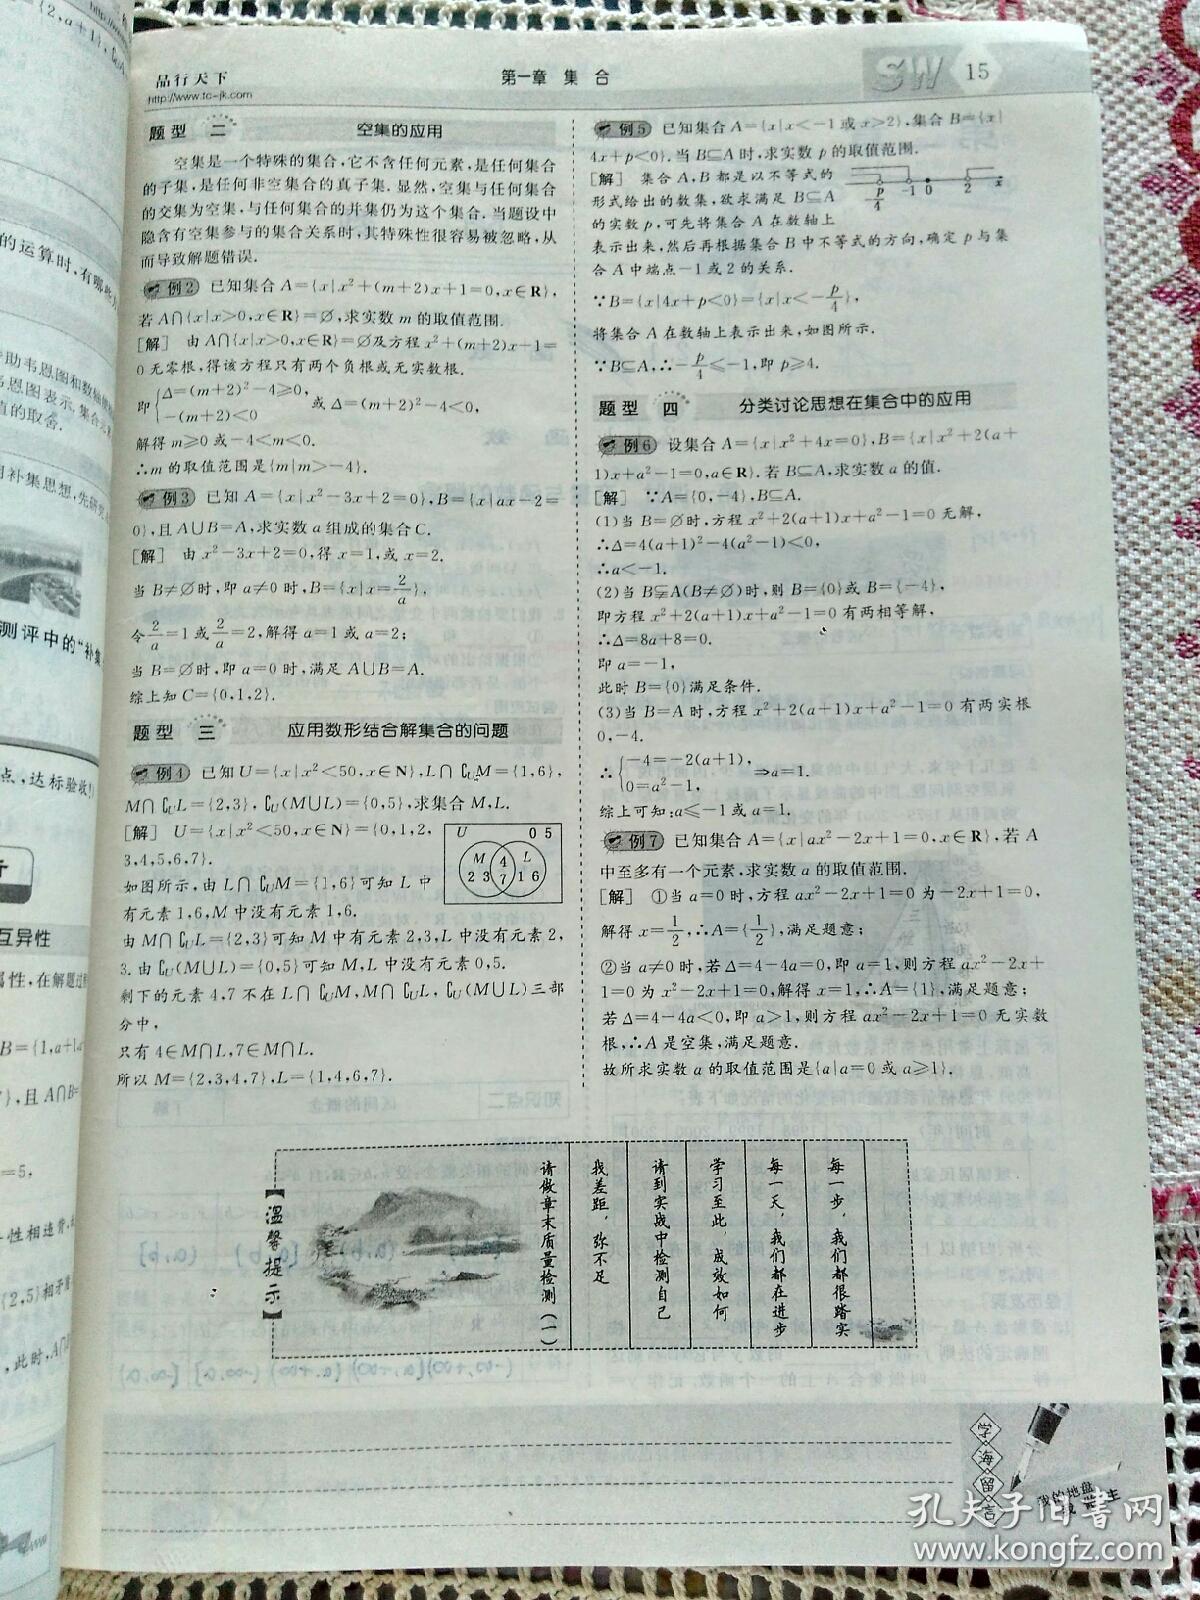 品行天下
http://www.tc-jk.com
第一章 集 合
15
题 型 二 空集的应用
空集是一个特殊的集合,它不含任何元素,是任何集合
的子集,是任何非空集合的真子集.显然,空集与任何集合
的交集为空集,与任何集合的并集仍为这个集合.当题设中
隐含有空集参与的集合关系时,其特殊性很容易被忽略,从
而导致解题错误.
例2 已知集合A={x|x²+(m+2)x+1=0,x∈R},
若A∩{x|x>0,x∈R}=∅,求实数m的取值范围.
[解] 由A∩{x|x>0,x∈R}=∅及方程x²+(m+2)x-1=
0无零根,得该方程只有两个负根或无实数根.
即{Δ=(m+2)²-4≥0, -(m+2)<0 或Δ=(m+2)²-4<0,
解得m≥0或-4<m<0.
∴m的取值范围是{m|m>-4}.
例3 已知A={x|x²-3x+2=0},B={x|ax-2=
0},且A∪B=A,求实数a组成的集合C.
[解] 由x²-3x+2=0,得x=1,或x=2.
当B≠∅时,即a≠0时,B={x|x=2/a},
令2/a=1或2/a=2,解得a=1或a=2;
当B=∅时,即a=0时,满足A∪B=A.
综上知C={0,1,2}.
题 型 三 应用数形结合解集合的问题
例4 已知U={x|x²<50,x∈N},L∩∁UM={1,6},
M∩∁UL={2,3},∁U(M∪L)={0,5},求集合M,L.
[解] U={x|x²<50,x∈N}={0,1,2,
3,4,5,6,7}.
如图所示,由L∩∁UM={1,6}可知L中
有元素1,6,M中没有元素1,6.
U 0 5
M 4 L
2 3 7 1 6
由M∩∁UL={2,3}可知M中有元素2,3,L中没有元素2,
3.由∁U(M∪L)={0,5}可知M,L中没有元素0,5.
剩下的元素4,7不在L∩∁UM,M∩∁UL,∁U(M∪L)三部
分中,
只有4∈M∩L,7∈M∩L.
所以M={2,3,4,7},L={1,4,6,7}.
例5 已知集合A={x|x<-1或x>2},集合B={x|
4x+p<0}.当B⊆A时,求实数p的取值范围.
[解] 集合A,B都是以不等式的
形式给出的数集,欲求满足B⊆A
的实数p,可先将集合A在数轴上
-p/4 -1 0 2 x
表示出来,然后再根据集合B中不等式的方向,确定p与集
合A中端点-1或2的关系.
∵B={x|4x+p<0}={x|x<-p/4},
将集合A在数轴上表示出来,如图所示.
∵B⊆A,∴-p/4≤-1,即p≥4.
题 型 四 分类讨论思想在集合中的应用
例6 设集合A={x|x²+4x=0},B={x|x²+2(a+
1)x+a²-1=0,a∈R}.若B⊆A,求实数a的值.
[解] ∵A={0,-4},B⊆A.
(1)当B=∅时,方程x²+2(a+1)x+a²-1=0无解,
∴Δ=4(a+1)²-4(a²-1)<0,
∴a<-1.
(2)当B⫋A(B≠∅)时,则B={0}或B={-4},
即方程x²+2(a+1)x+a²-1=0有两相等解,
∴Δ=8a+8=0.
即a=-1,
此时B={0}满足条件.
(3)当B=A时,方程x²+2(a+1)x+a²-1=0有两实根
0,-4.
∴{-4=-2(a+1), 0=a²-1, ⇒a=1.
综上可知:a≤-1或a=1.
例7 已知集合A={x|ax²-2x+1=0,x∈R},若A
中至多有一个元素,求实数a的取值范围.
[解] ①当a=0时,方程ax²-2x+1=0为-2x+1=0,
解得x=1/2,∴A={1/2},满足题意;
②当a≠0时,若Δ=4-4a=0,即a=1,则方程ax²-2x+
1=0为x²-2x+1=0,解得x=1,∴A={1},满足题意;
若Δ=4-4a<0,即a>1,则方程ax²-2x+1=0无实数
根,∴A是空集,满足题意.
故所求实数a的取值范围是{a|a=0或a≥1}.
每一步,我们都很踏实
每一天,我们都在进步
学习至此,成效如何
请到实战中检测自己
找差距,弥不足
请做章末质量检测(一)
【温馨提示】
学海留言
我的地盘
我做主
孔夫子旧书网
www.kongfz.com